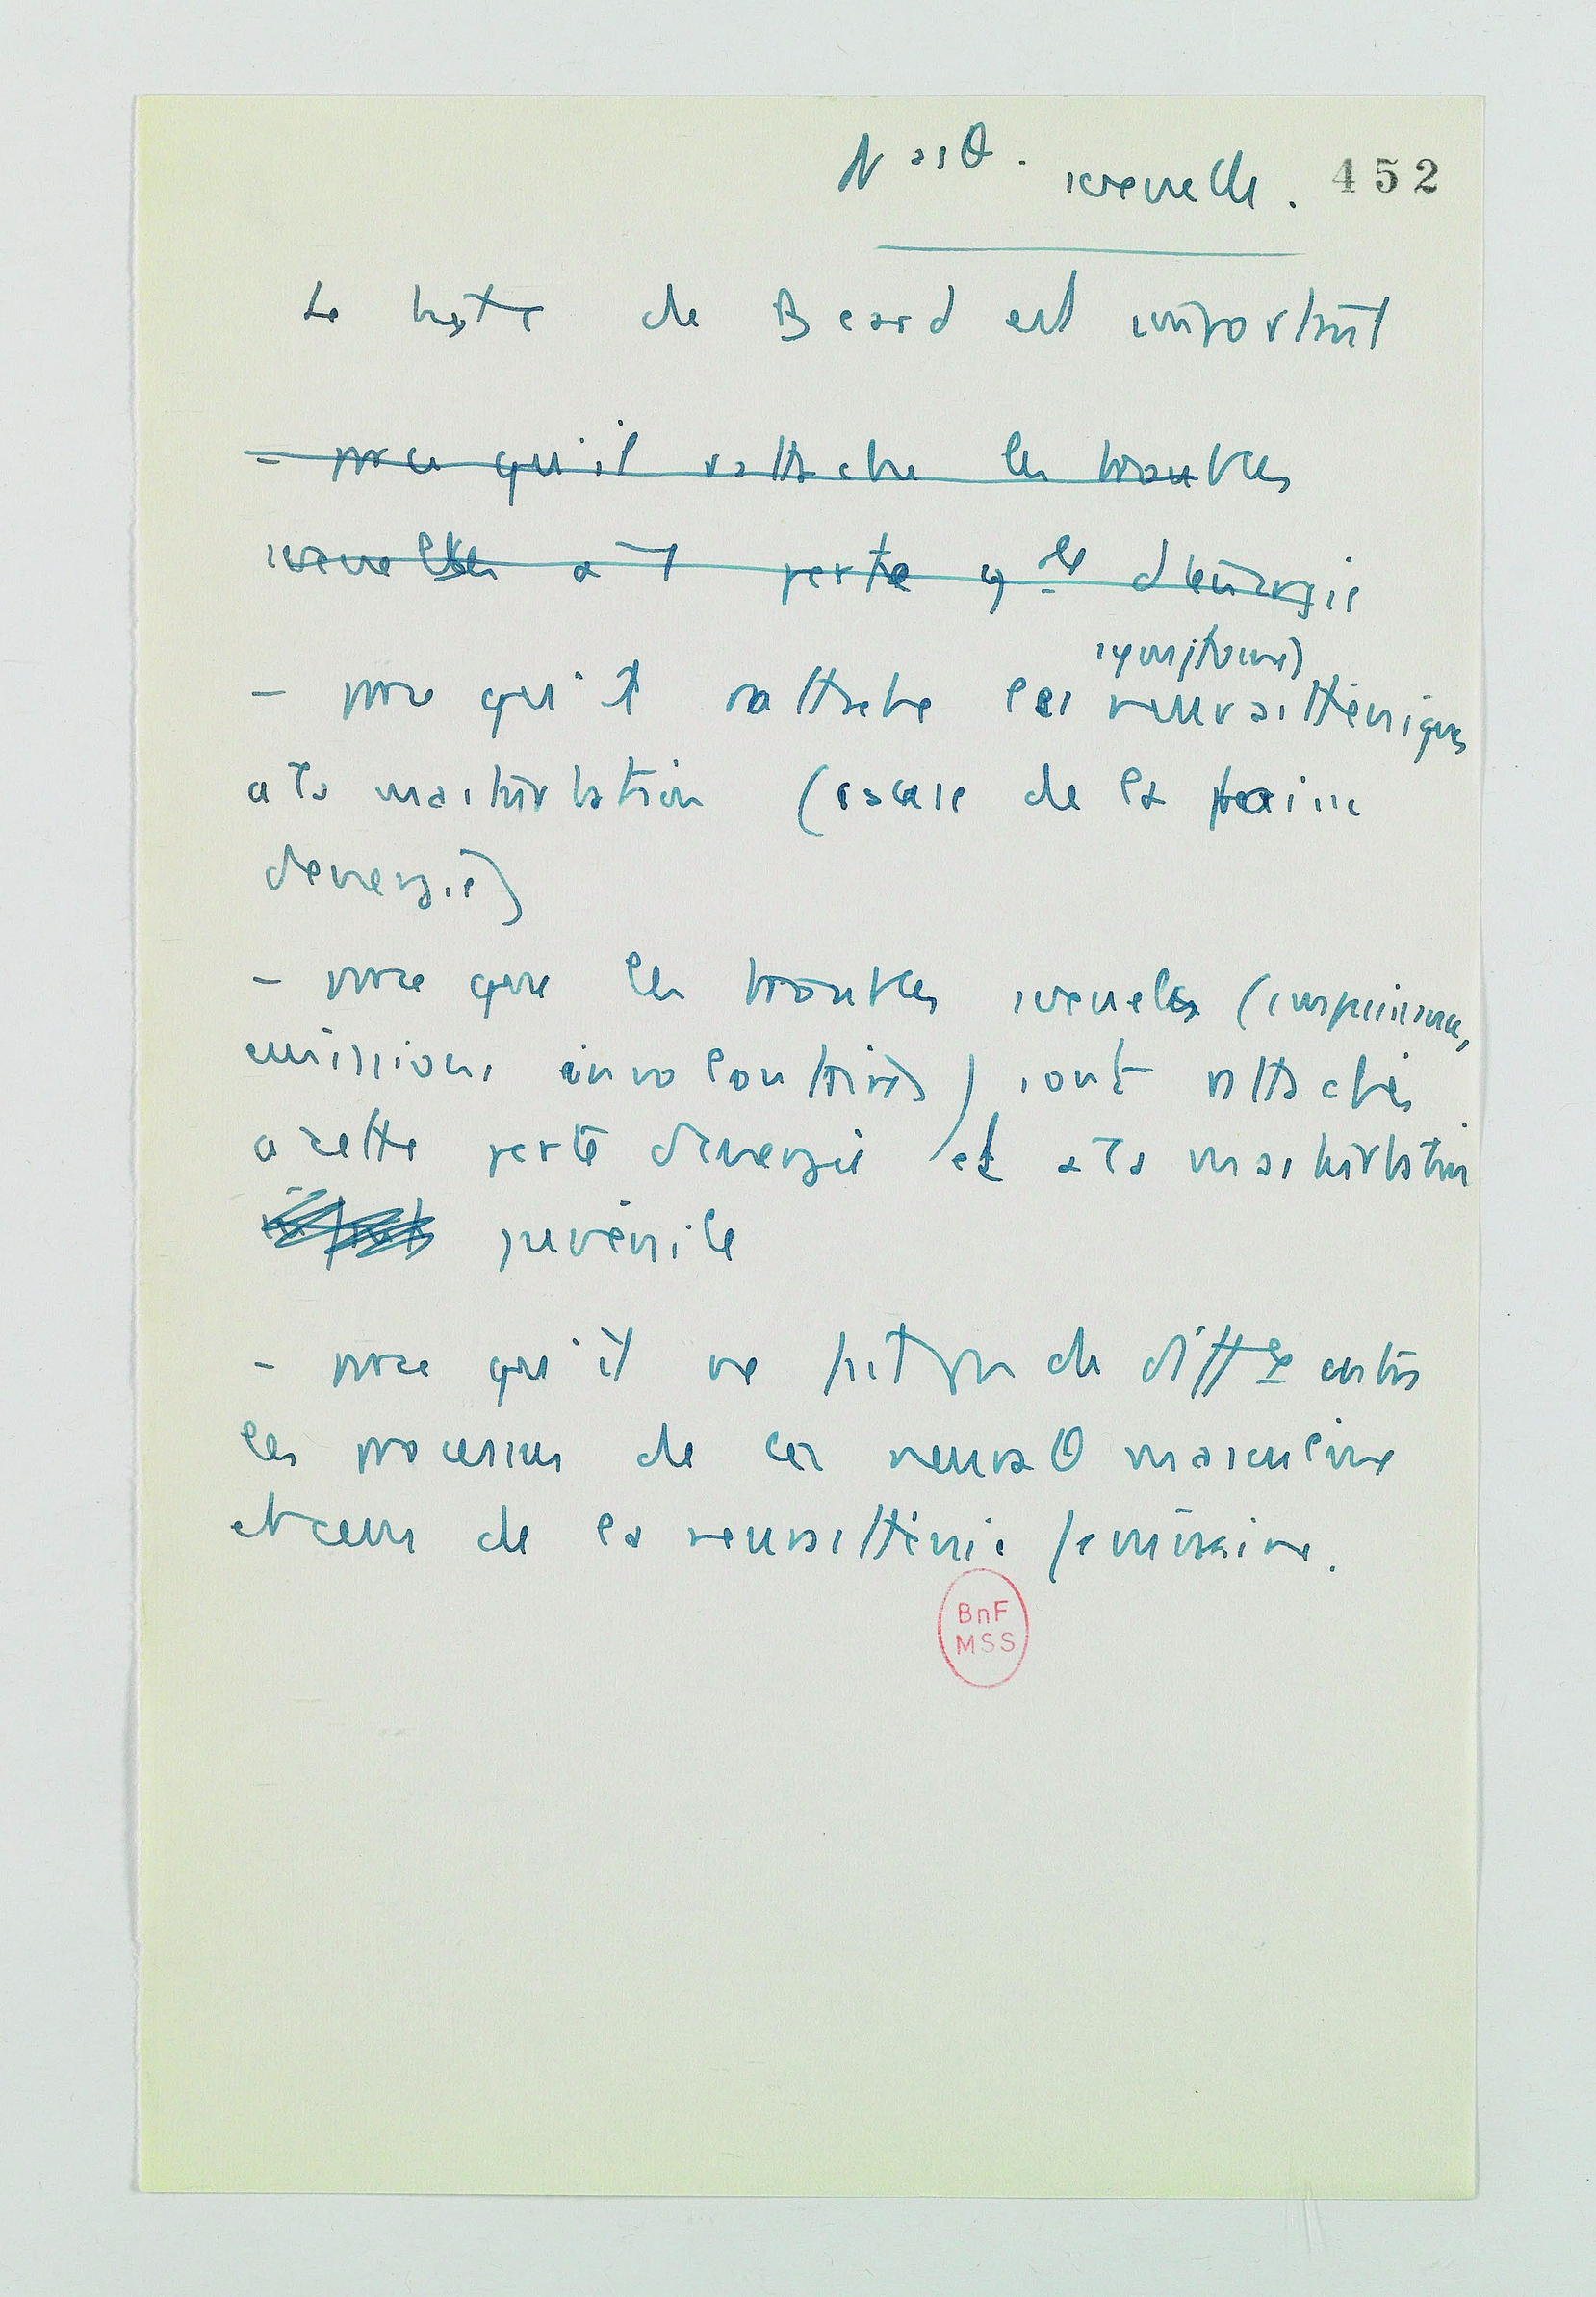 Nasθ. sexuelle. 452
Le texte de Beard est important
- parce qu'il rattache les troubles
sexuelles à 1 perte gle d'énergie
symptômes)
- parce qu'il rattache les neurasthéniques
a la masturbation (cause de la baisse
d'energie)
- parce que les troubles sexuels (impuissance,
emissions involontaires) sont rattachés
a cette perte d'energie et a la masturbation
juvénile
- parce qu'il ne fait pas de diffce entre
les processus de la neurasθ masculine
et ceux de la neurasthénie féminine.
BnF
MSS